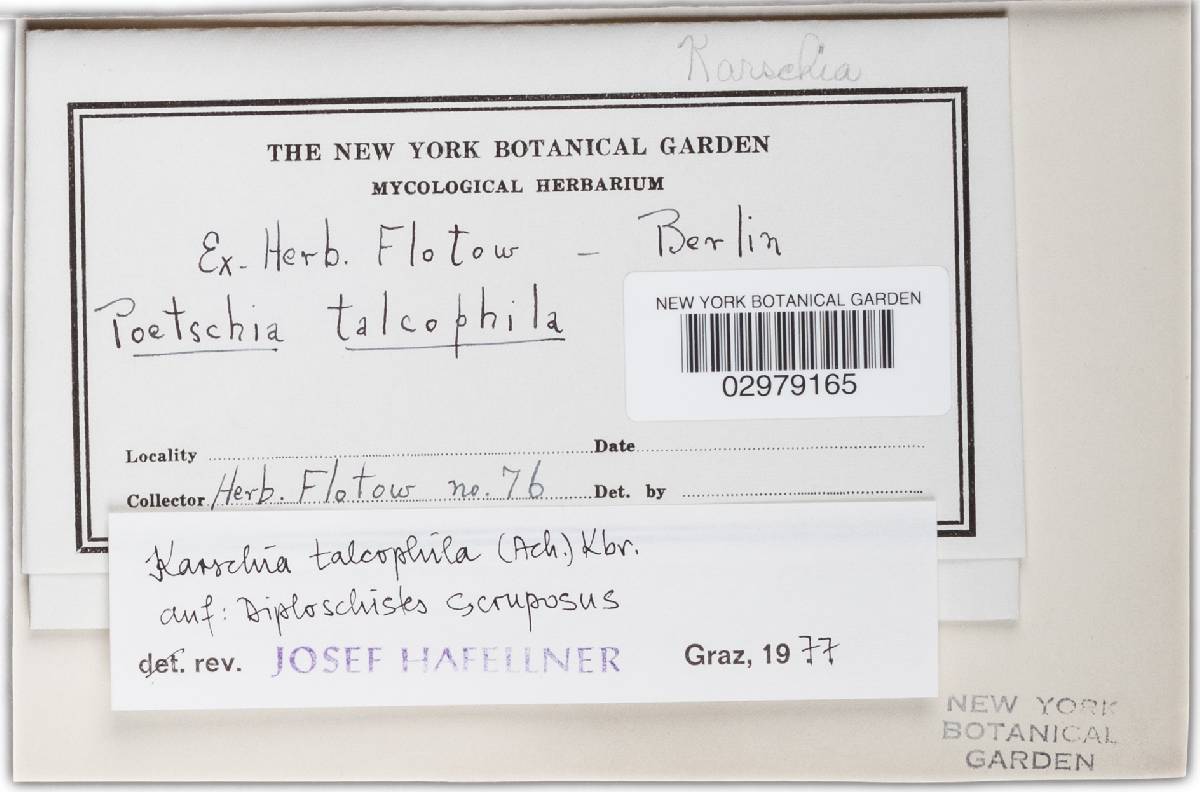 Karschia
THE NEW YORK BOTANICAL GARDEN
MYCOLOGICAL HERBARIUM
Ex. Herb. Flotow – Berlin
Poetschia talcophila
NEW YORK BOTANICAL GARDEN
02979165
Locality
Date
Collector Herb. Flotow no. 76
Det. by
Karschia talcophila (Ach.) Kbr.
auf: Diploschistes scruposus
det. rev. JOSEF HAFELLNER Graz, 1977
NEW YORK
BOTANICAL
GARDEN